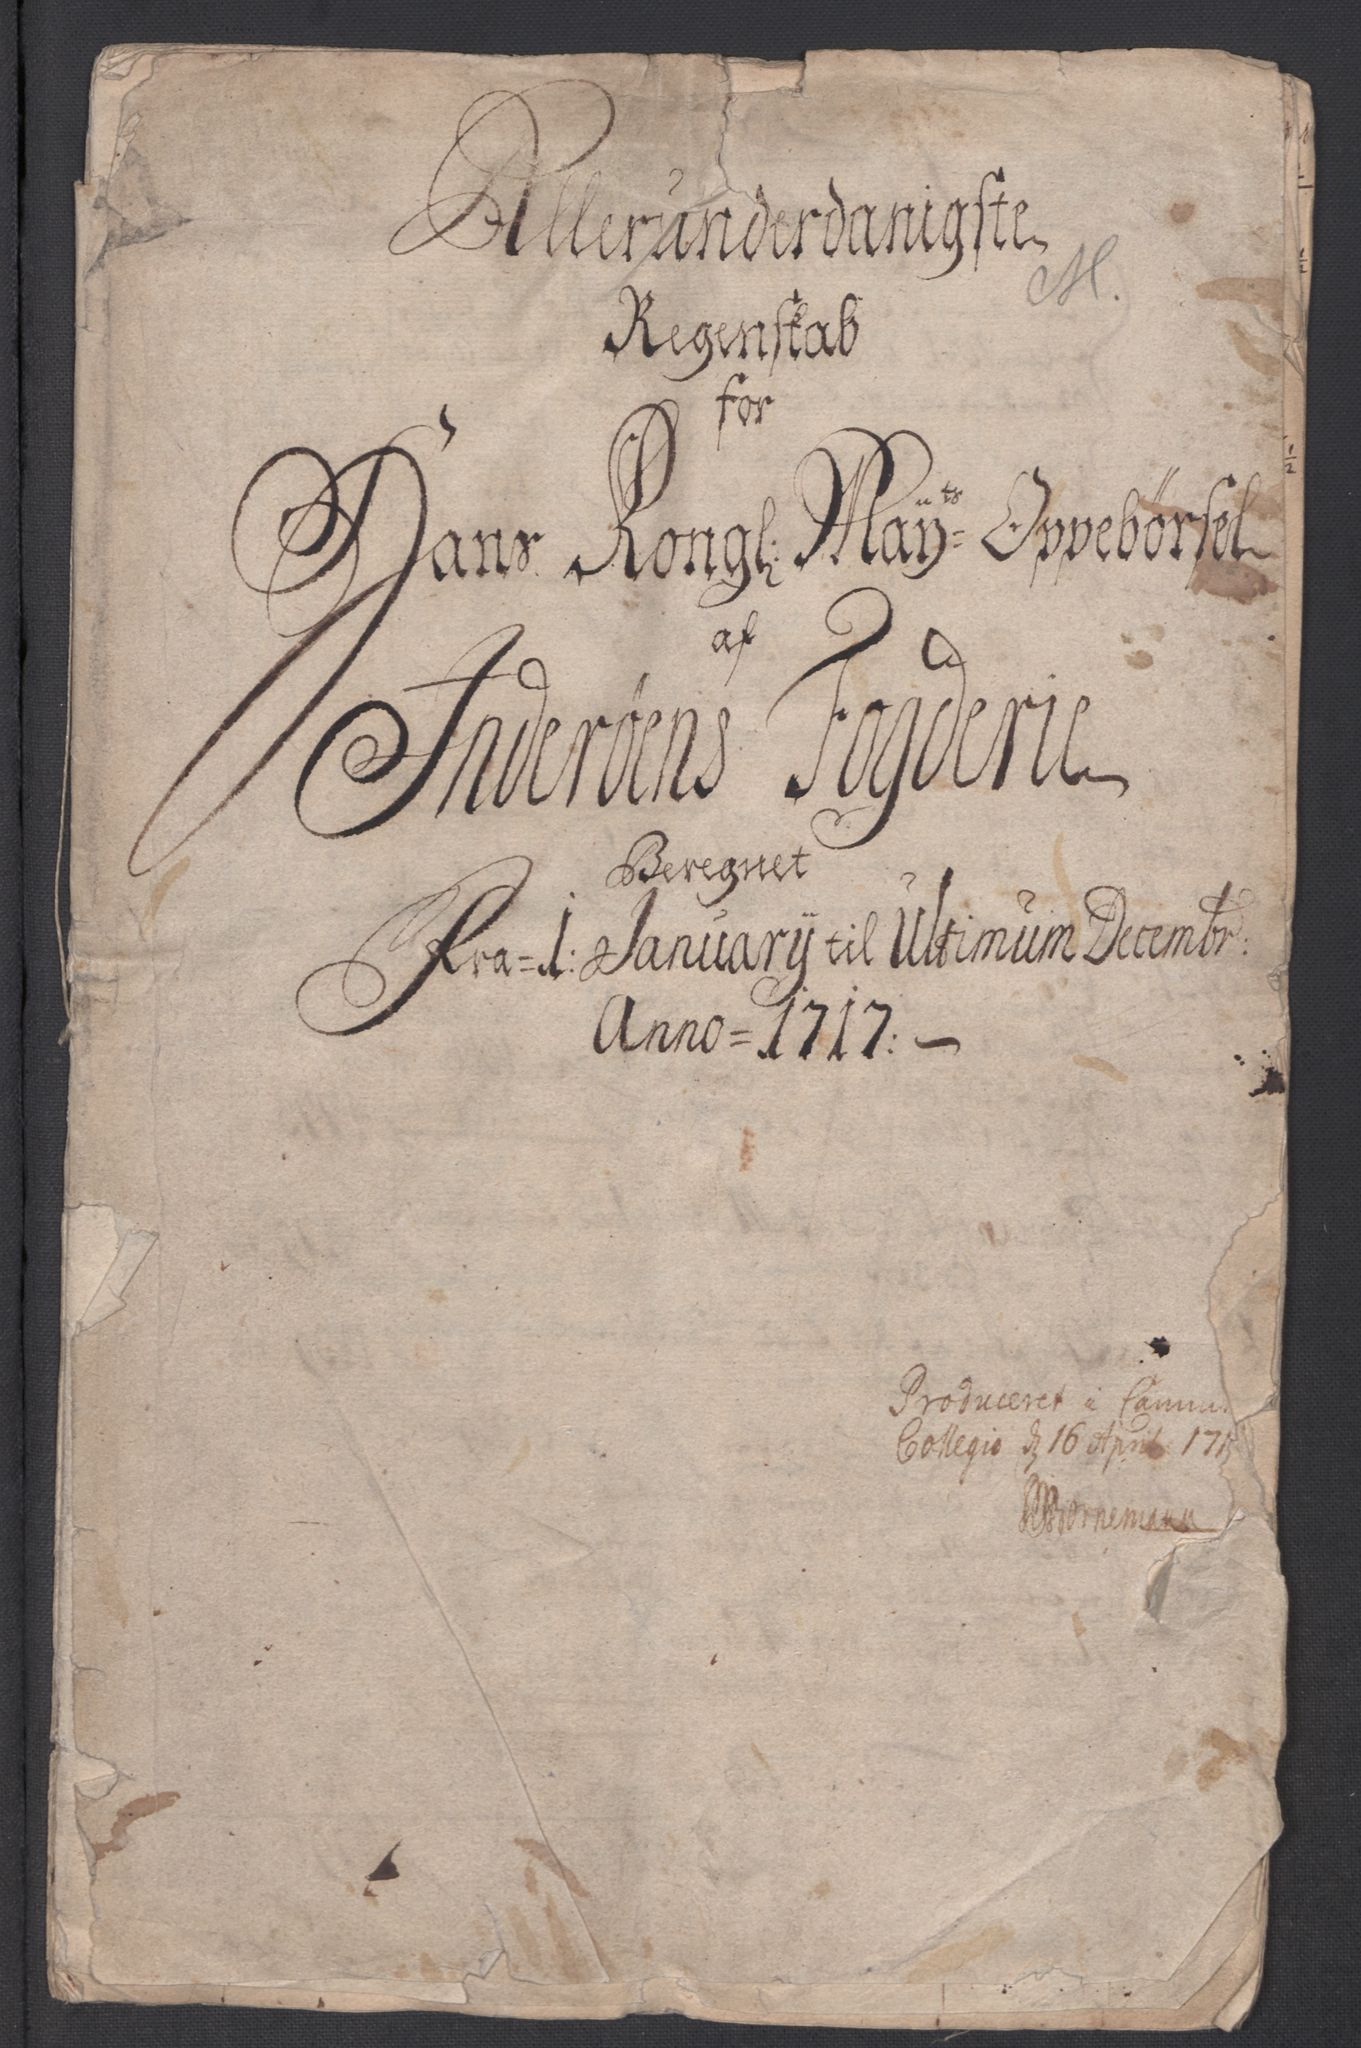 Allerunderdanigste
M.
Regenskab
for
Hans Kongl: Maÿts= Oppebörsel
af
Inderøens Fogderie
Beregnet
Fra=1: Januarÿ til Ultimum Decembr:
Anno=1717:
Produceret i Camm.
Collegio d 16 April 171
Bornemann